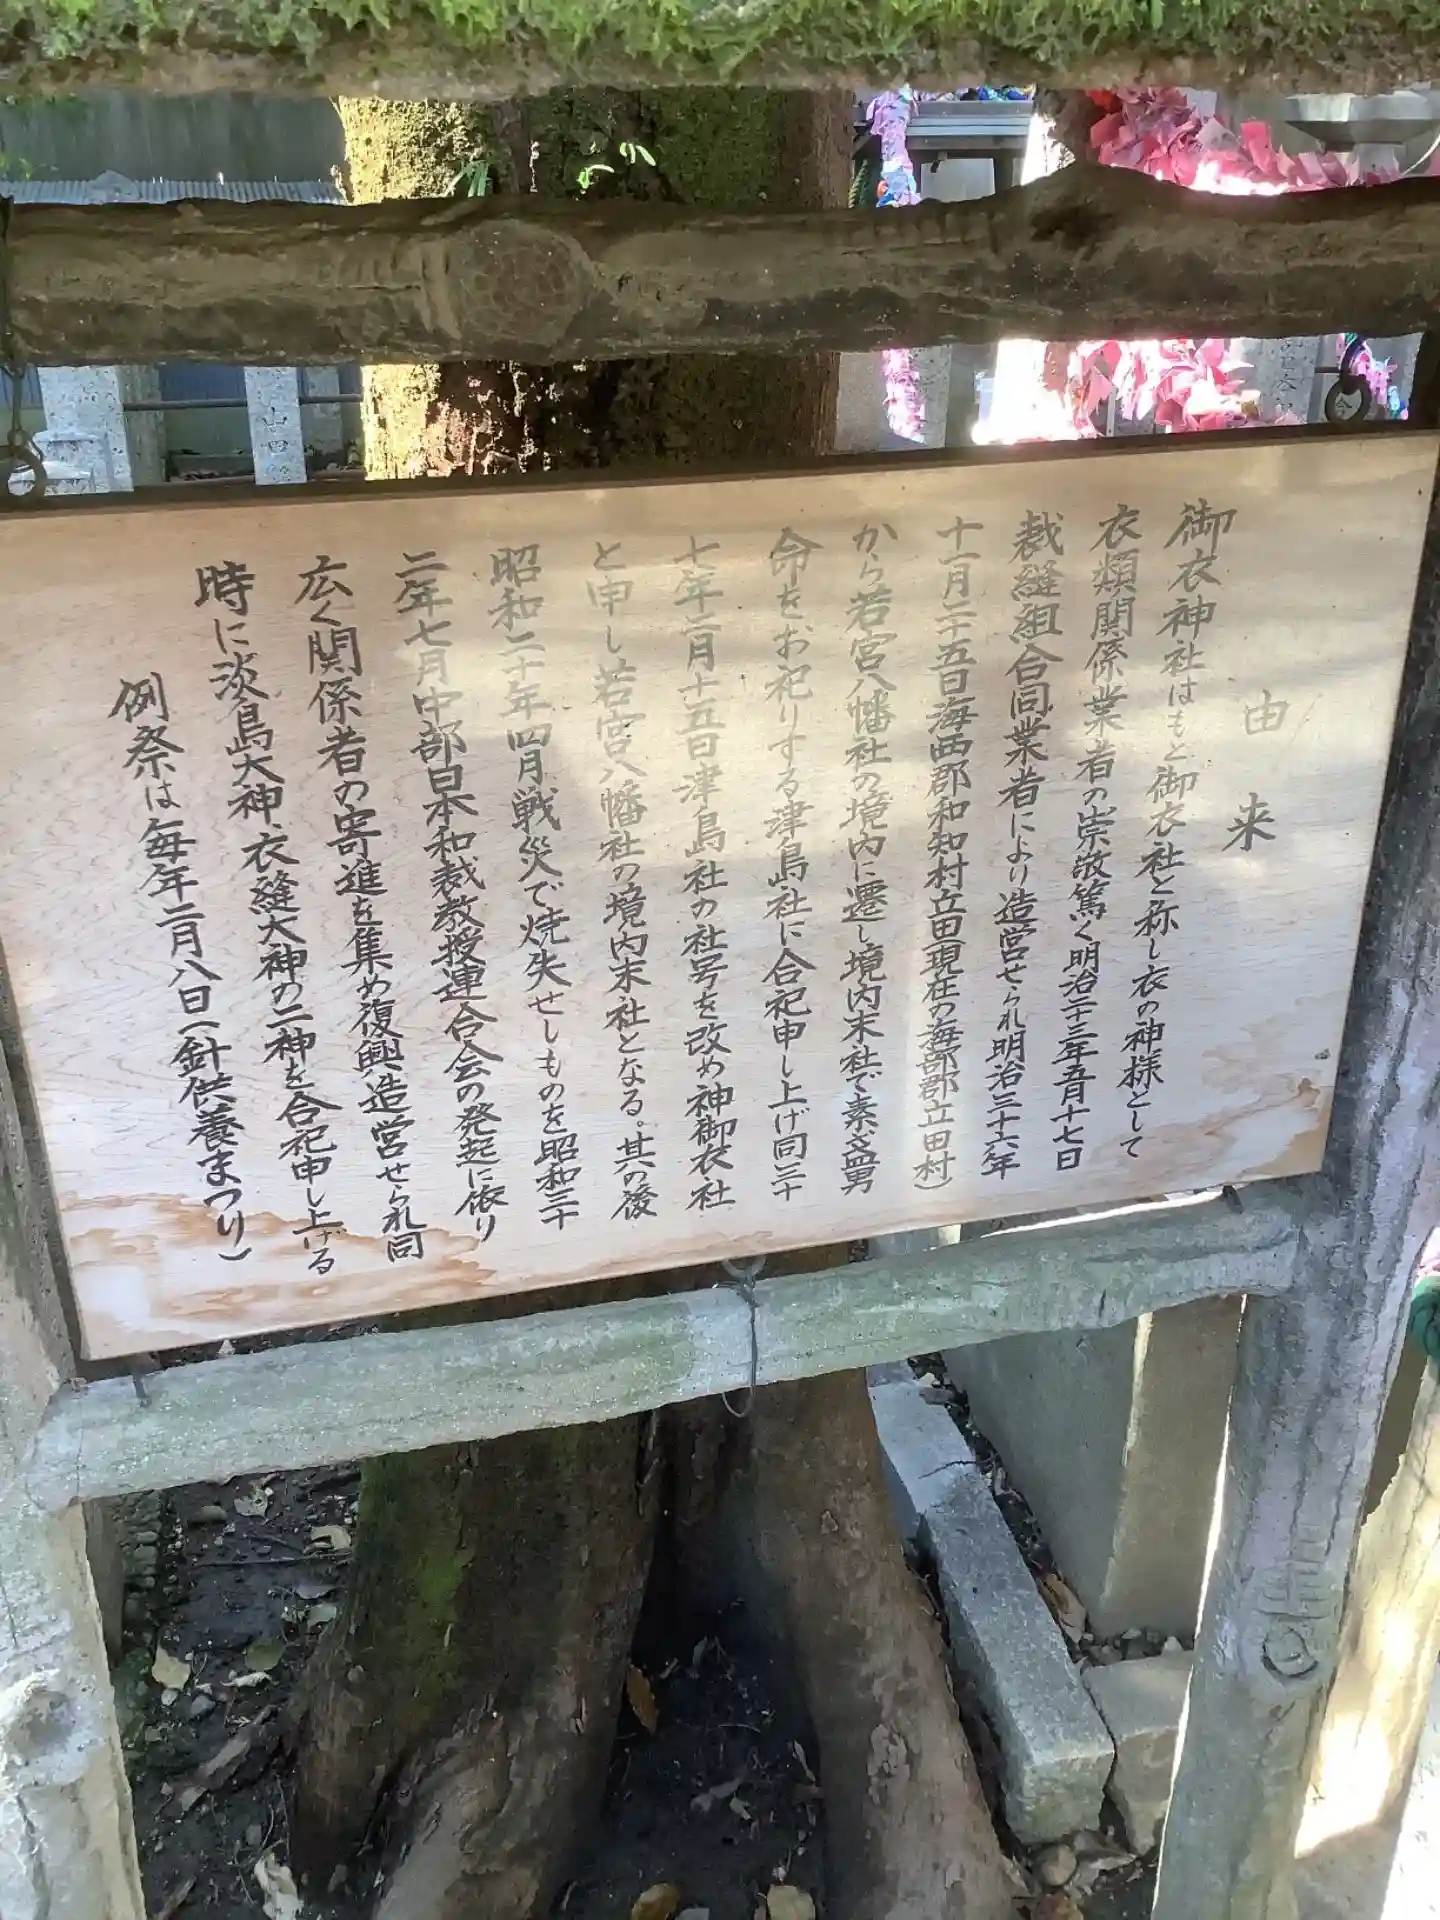 由来
御衣神社はもと御衣社と称し衣の神様として
衣類関係業者の崇敬篤く明治二十三年五月十七日
裁縫組合同業者により造営せられ明治三十六年
十一月二十五日海西郡和知村立田(現在の海部郡立田村)
から若宮八幡社の境内に遷し境内末社で素盞男
命をお祀りする津島社に合祀申し上げ同三十
七年二月十五日津島社の社号を改め神御衣社
と申し若宮八幡社の境内末社となる。其の後
昭和二十年四月戦災で焼失せしものを昭和三十
二年七月中部日本和裁教授連合会の発起に依り
広く関係者の寄進を集め復興造営せられ同
時に淡島大神、衣縫大神の二神を合祀申し上げる
例祭は毎年二月八日(針供養まつり)
山田